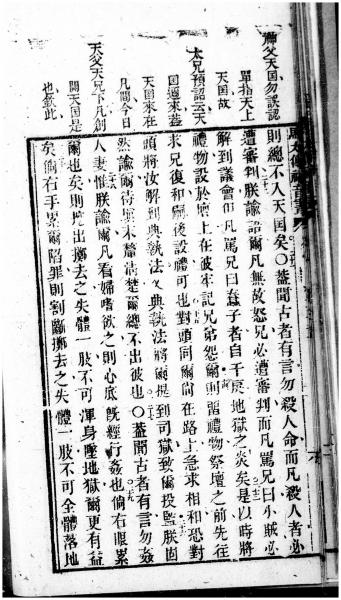 馬太傳福音書
神父天囯勿誤認
單指天上
天囯故
太兄預詔云天
囯邇來葢
天囯來在
凡間今日
天父天兄下凡創
開天囯是
也欽此
則總不入天囯矣○葢聞古者有言勿殺人命而凡殺人者必
遭審判朕諭爾凡無故怒兄必遭審判而凡罵兄曰小賊必
解到議會但凡罵兄曰蠢子者自干戾地獄之炎矣是以時將
禮物設於壇上在彼牢記兄弟怨爾則畱禮物祭壇之前先往
求兄復和爾後設禮可也對頭同爾尙在路上急求相和恐對
頭將汝解到典執法又典執法將爾提到司獄致爾投監朕固
然諭爾待毫末釐清楚爾總不出彼也○葢聞古者有言勿姦
人妻惟朕諭爾凡看婦嗜欲之則心底旣經行姦也倘右眼累
爾也矣則擲出擲去之失體一肢不可渾身墜地獄爾更有益
矣倘右手累爾陷罪則割斷擲去之失體一肢不可全體落地